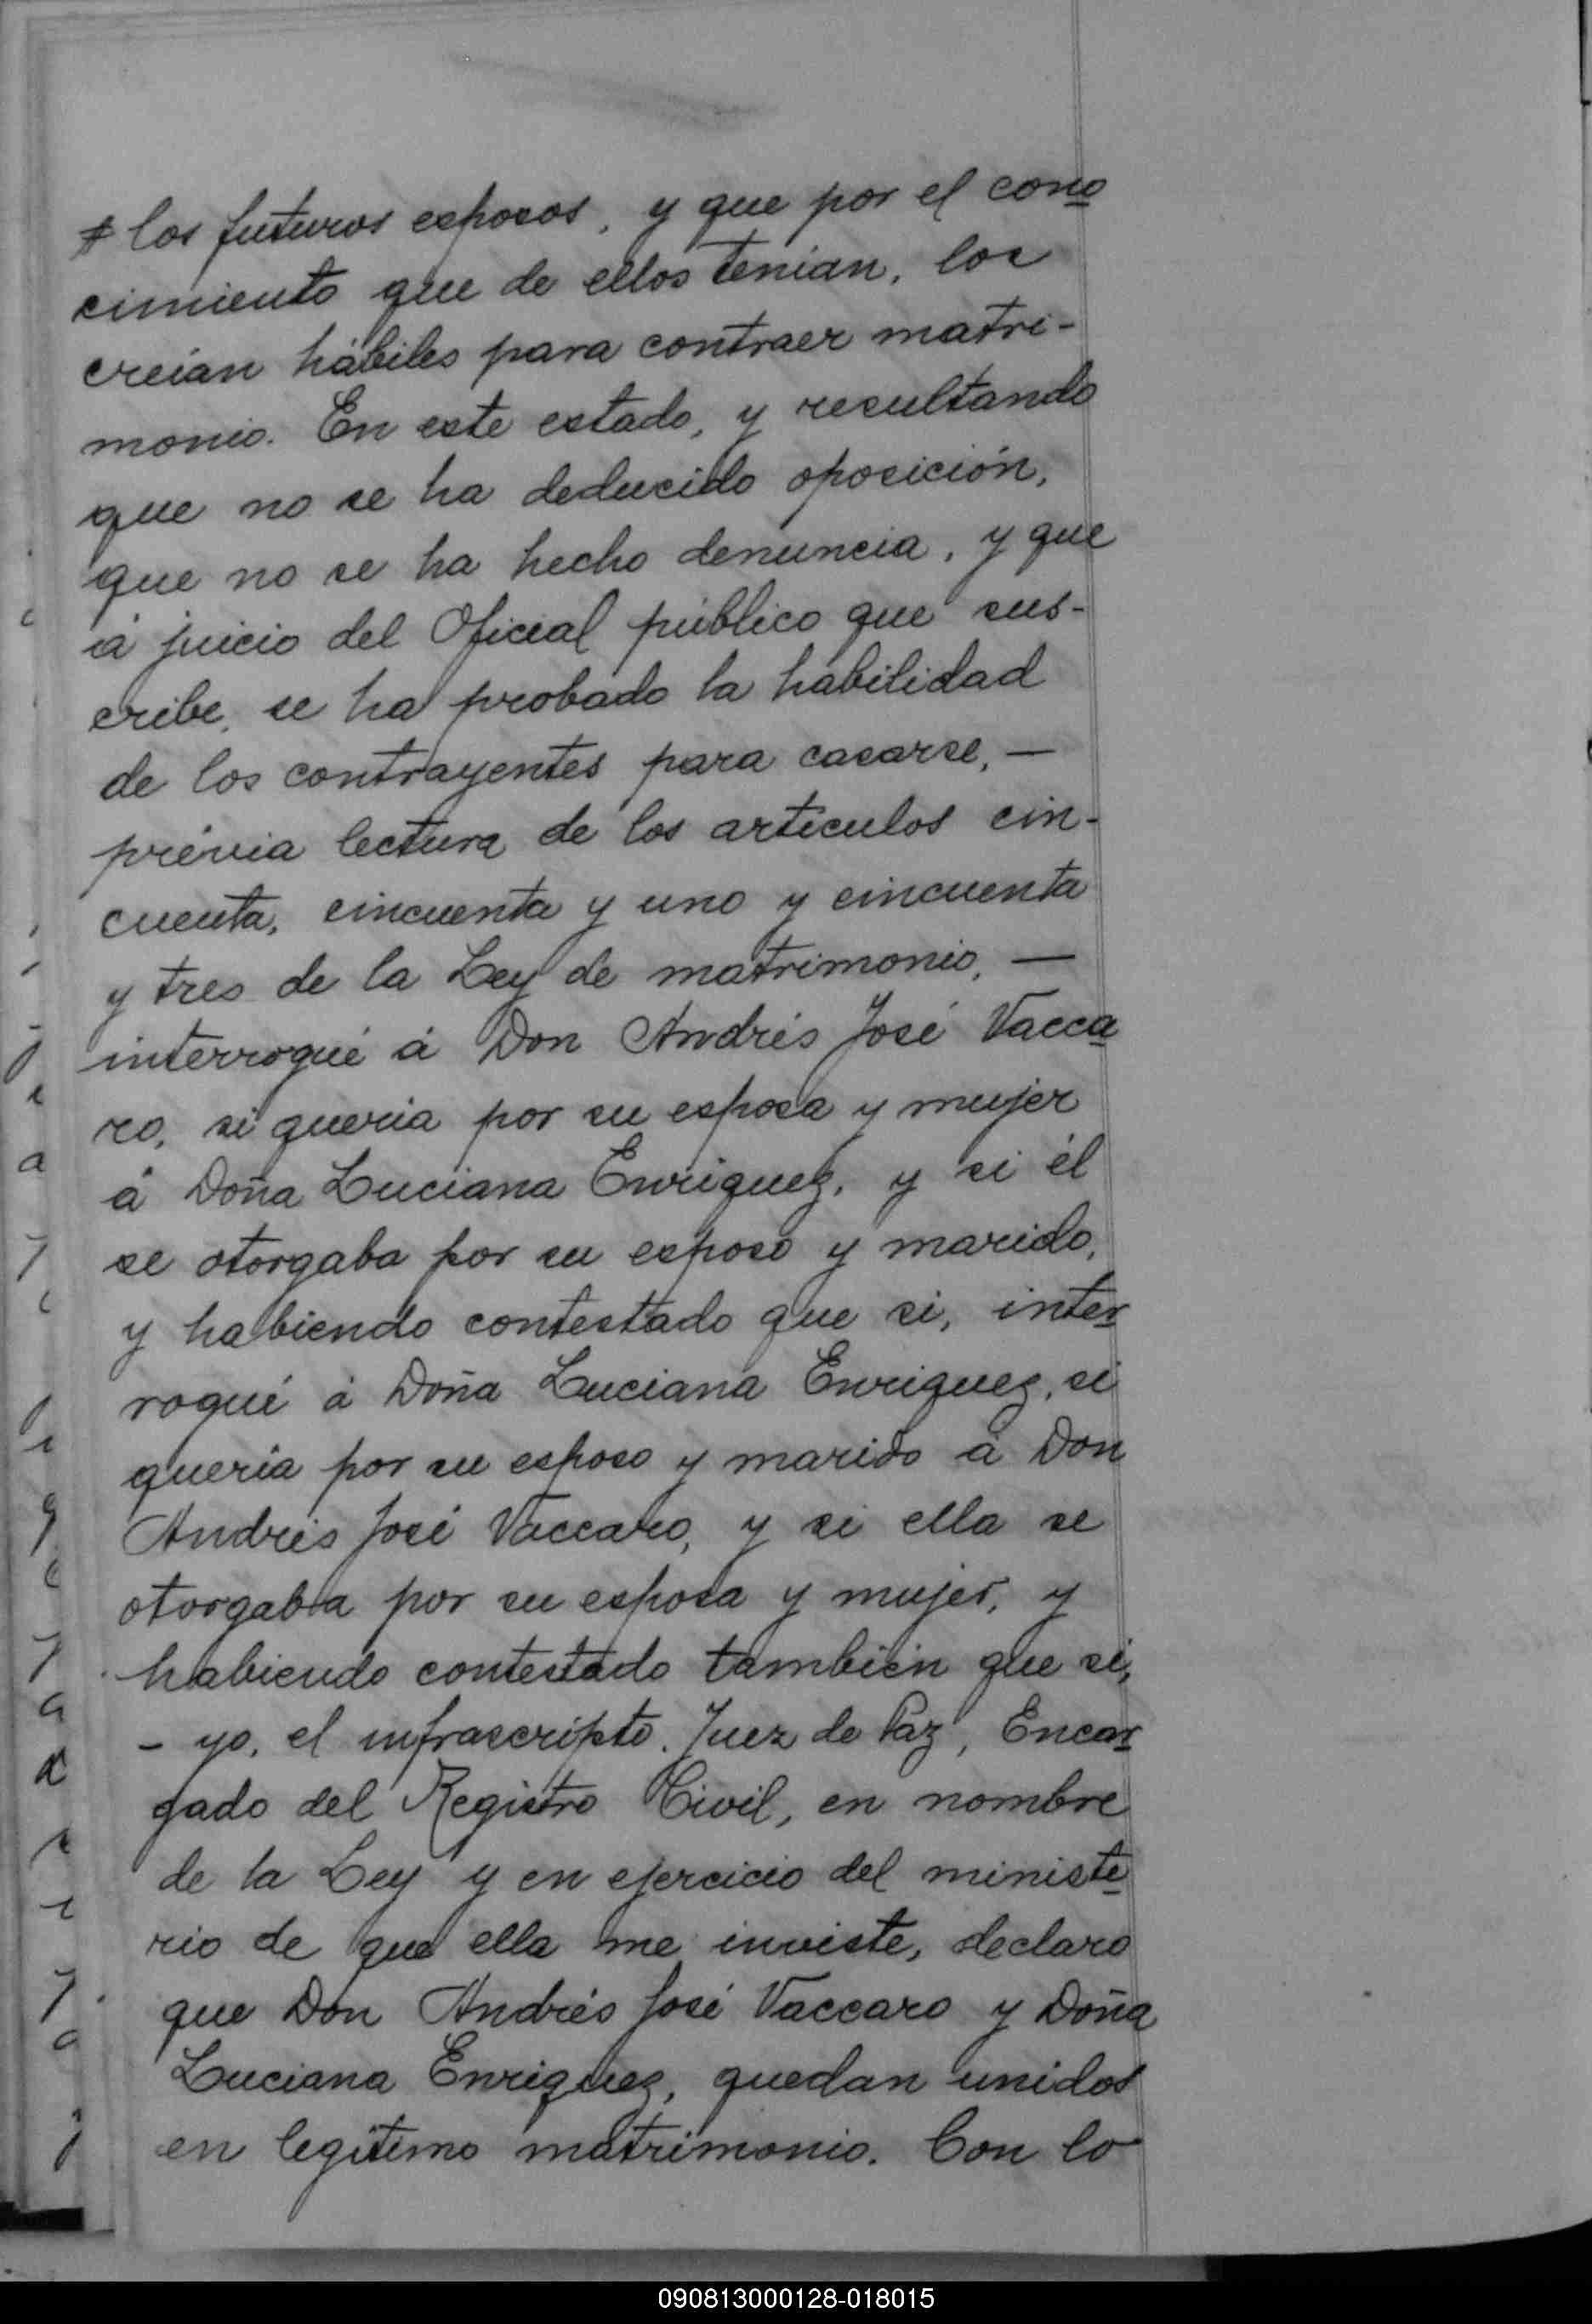 # los futuros esposos, y que por el cono
cimiento que de ellos tenían, los
creían hábiles para contraer matri-
monio. En este estado, y resultando
que no se ha deducido oposición,
que no se ha hecho denuncia, y que
á juicio del Oficial público que sus-
cribe, se ha probado la habilidad
de los contrayentes para casarse, —
prévia lectura de los artículos cin-
cuenta, cincuenta y uno y cincuenta
y tres de la Ley de matrimonio, —
interrogué á Don Andrés José Vacca
ro, si quería por su esposa y mujer
á Doña Luciana Enriquez, y si él
se otorgaba por su esposo y marido,
y habiendo contestado que si, inter
rogué á Doña Luciana Enriquez, si
quería por su esposo y marido á Don
Andrés José Vaccaro, y si ella se
otorgaba por su esposa y mujer, y
habiendo contestado también que si,
- yo, el infrascripto. Juez de Paz, Encar
gado del Registro Civil, en nombre
de la Ley y en ejercicio del ministe
rio de que ella me inviste, declaro
que Don Andrés José Vaccaro y Doña
Luciana Enriquez, quedan unidos
en legítimo matrimonio. Con lo
090813000128-018015